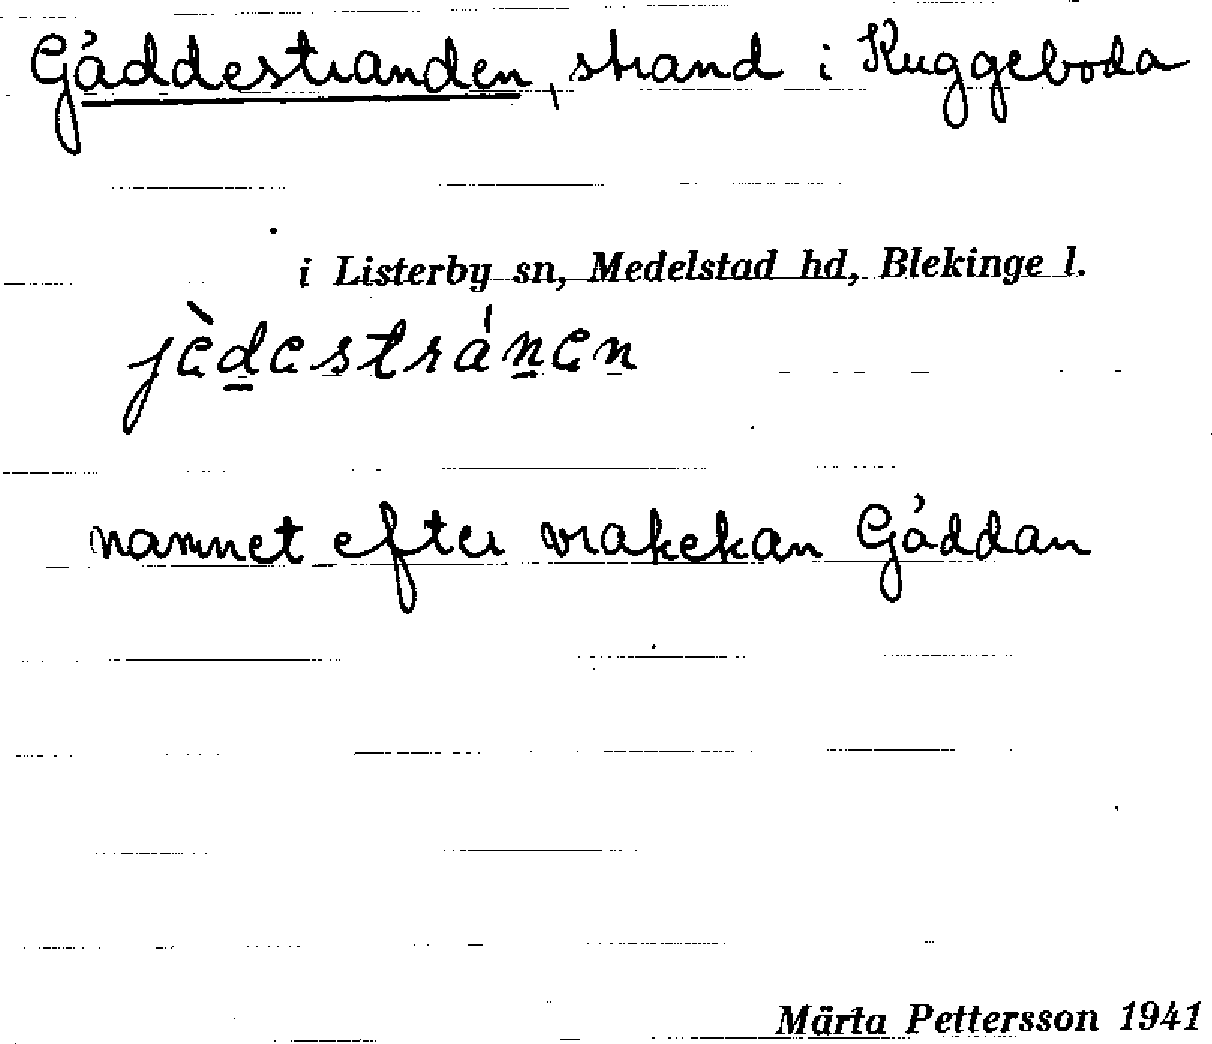 Gäddestranden, strand i Kuggeboda
i Listerby sn, Medelstad hd, Blekinge l.
jèdestránen
namnet efter vrakekan Gäddan
Märta Pettersson 1941